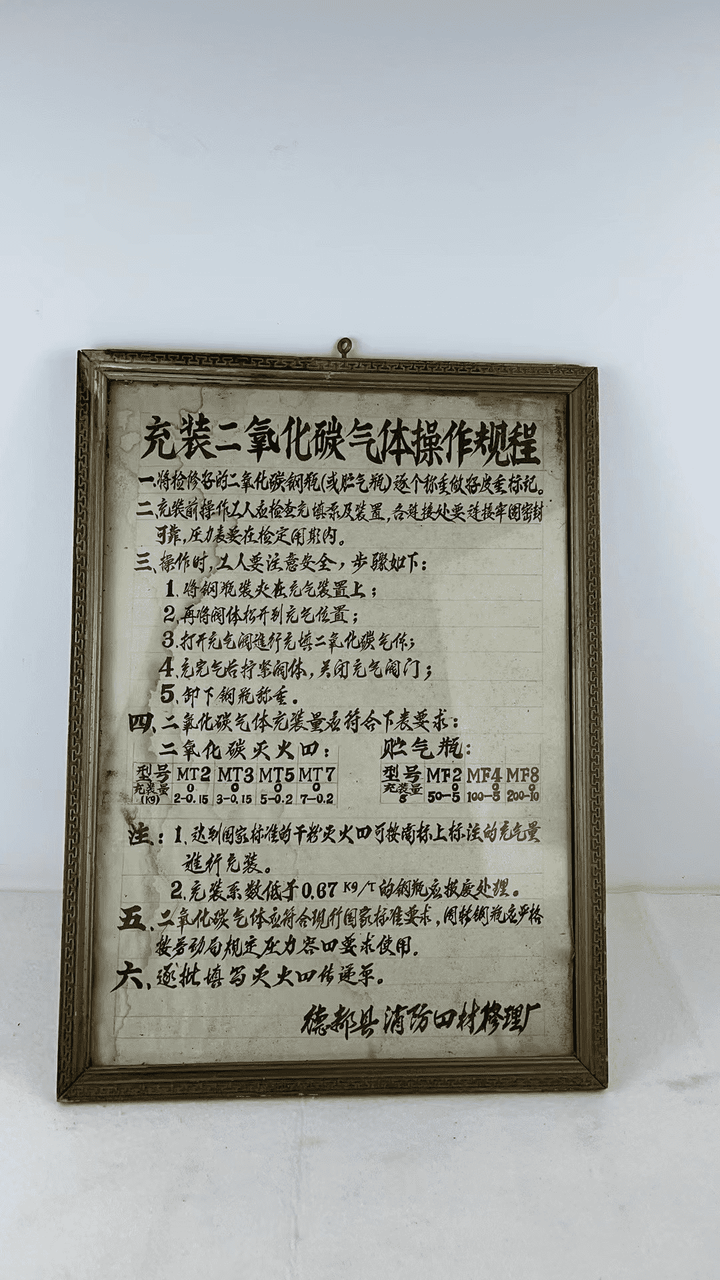 充装二氧化碳气体操作规程
一、将检修好的二氧化碳钢瓶(或贮气瓶)逐个称重做好皮重标记。
二、充装前操作工人应检查充填泵及装置,各连接处要连接牢固密封
可靠,压力表要在检定周期内。
三、操作时,工人要注意安全,步骤如下:
1.将钢瓶装夹在充气装置上;
2.再将阀体松开到充气位置;
3.打开充气阀进行充填二氧化碳气体;
4.充完气后拧紧阀体,关闭充气阀门;
5.卸下钢瓶称重。
四、二氧化碳气体充装量应符合下表要求:
二氧化碳灭火口: 贮气瓶:
型号 MT2 MT3 MT5 MT7 型号 MF2 MF4 MF8
充装量(KG) 2-0.15 3-0.15 5-0.2 7-0.2 充装量g 50-5 100-5 200-10
注:1.达到国家标准的干粉灭火口可按商标上标注的充气量
进行充装。
2.充装系数低于0.67 KG/T的钢瓶应报废处理。
五、二氧化碳气体应符合现行国家标准要求,周转钢瓶应严格
按劳动局规定压力容口要求使用。
六、逐批填写灭火口传递单。
德都县消防口材修理厂